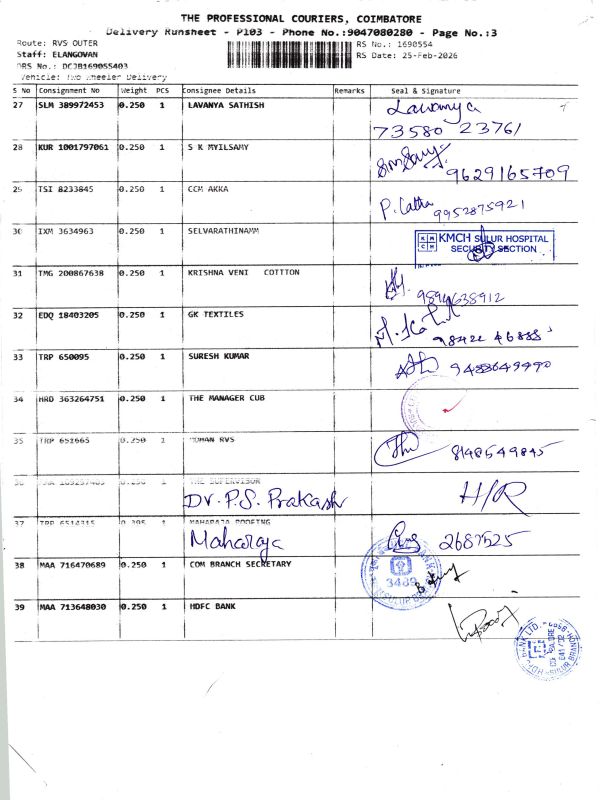 THE PROFESSIONAL COURIERS, COIMBATORE
Delivery Runsheet - P103 - Phone No.:9047080280 - Page No.:3
Route: RVS OUTER RS No.: 1690554
Staff: ELANGOVAN RS Date: 25-Feb-2026
DRS No.: DCJB169055403
Vehicle: Two Wheeler Delivery
S No Consignment No Weight PCS Consignee Details Remarks Seal & Signature
27 SLM 389972453 0.250 1 LAVANYA SATHISH Lavanya
73580 23761
28 KUR 1001797061 0.250 1 S K MYILSAMY
9629165709
29 TSI 8233845 0.250 1 CCM AKKA
9952875921
30 IXM 3634963 0.250 1 SELVARATHINAMM KMCH SULUR HOSPITAL
SECURITY SECTION
31 TMG 200867638 0.250 1 KRISHNA VENI COTTTON
9894638912
32 EDQ 18403205 0.250 1 GK TEXTILES
33 TRP 650095 0.250 1 SURESH KUMAR 9488649990
34 HRD 363264751 0.250 1 THE MANAGER CUB
35 TRP 651665 0.250 1 MOHAN RVS 8148549845
36 0.250 1 THE SUPERVISOR
Dr. P.S. Prakash H/R
37 TRP 6514315 1 MAHARAJA ROOFING
Maharaja 2687525
38 MAA 716470689 0.250 1 COM BRANCH SECRETARY
3489
39 MAA 713648030 0.250 1 HDFC BANK